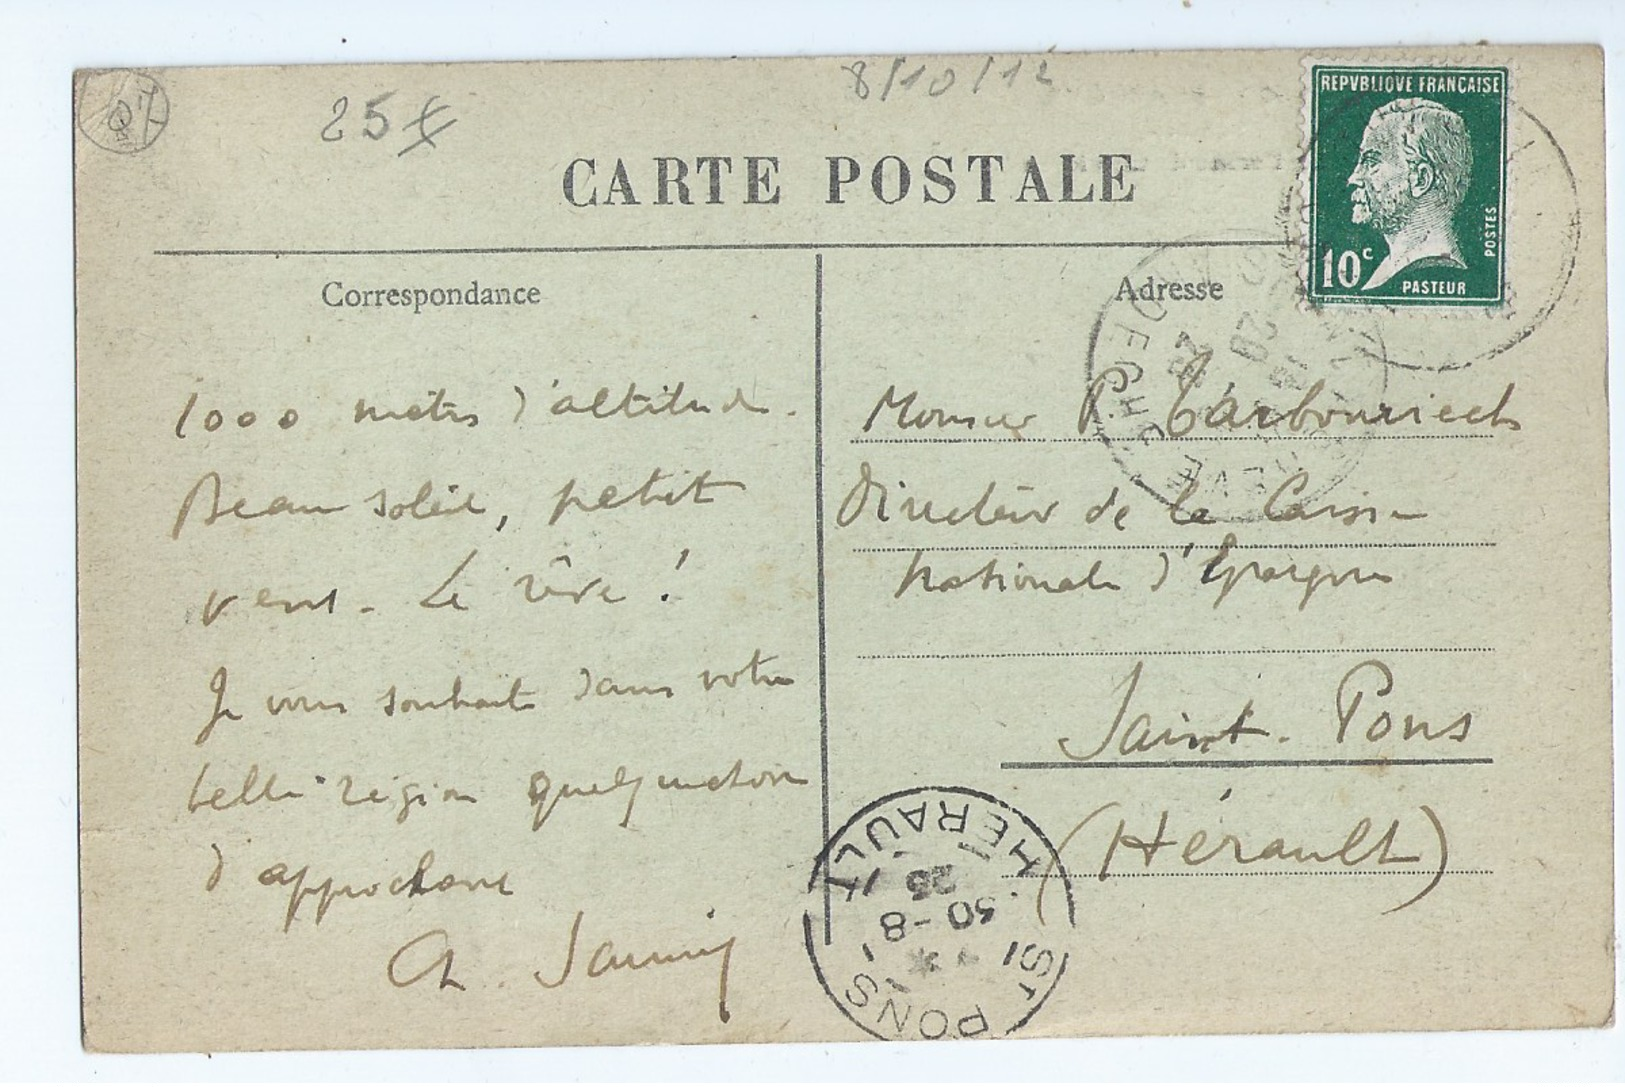 25 €
8/10/12
CARTE POSTALE
REPVBLIQVE FRANÇAISE
POSTES
10c
PASTEUR
Correspondance
Adresse
1000 mètres d'altitude.
Beau soleil, petit
vent. Le rêve !
Je vous souhaite dans votre
belle région quelque chose
d'approchant
Ch.
Monsieur P. Carbouriech
Directeur de la Caisse
Nationale d'Epargne
Saint-Pons
(Hérault)
ST PONS
30-8
25
HERAULT